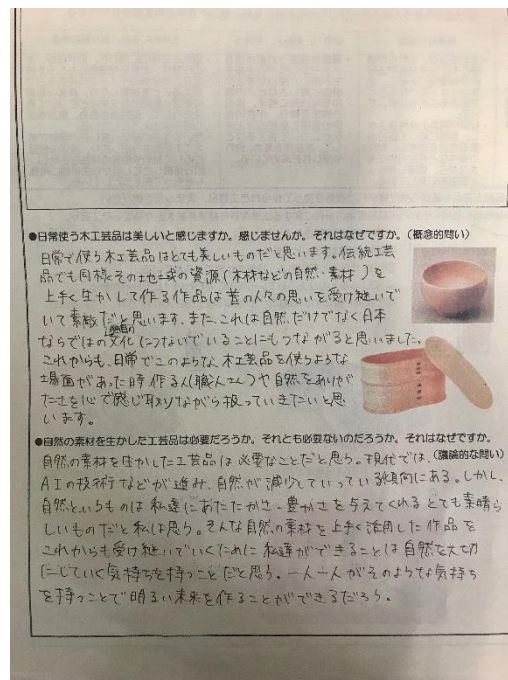 ●日常使う木工芸品は美しいと感じますか。感じませんか。それはなぜですか。(概念的問い)
日常で使う木工芸品はとても美しいものだと思います。伝統工芸
品でも同様、その地域の資源(木材などの自然・素材)を
上手く生かして作る作品は昔の人々の思いを受け継いで
いて素敵だと思います。また、これは自然だけでなく日本
ならではの独自の文化につないでいることにもつながると思いました。
これからも、日常でこのような、木工芸品を使うような
場面があった時作る人(職人さん)や自然をありが
たさを心で感じ取りながら扱っていきたいと思
います。
●自然の素材を生かした工芸品は必要だろうか。それとも必要ないのだろうか。それはなぜですか。
(議論的な問い)
自然の素材を生かした工芸品は必要なことだと思う。現代では、
AIの技術などが進み、自然が減少していっている傾向にある。しかし、
自然というものは私達にあたたかさ・豊かさを与えてくれるとても素晴ら
しいものだと私は思う。そんな自然の素材を上手く活用した作品を
これからも受け継いでいくために私達ができることは自然を大切
にしていく気持ちを持つことだと思う。一人一人がそのような気持ち
を持つことで明るい未来を作ることができるだろう。